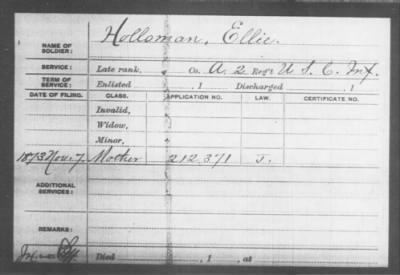 NAME OF SOLDIER: Hollsman, Ellie.
SERVICE: Late rank, Co. A. 2 Reg't U S. C. Inf.
TERM OF SERVICE: Enlisted , 1 Discharged , 1
DATE OF FILING. CLASS. APPLICATION NO. LAW. CERTIFICATE NO.
Invalid,
Widow,
Minor,
1873 Nov. 7. Mother 212.371
ADDITIONAL SERVICES:
REMARKS:
Died , 1 , at